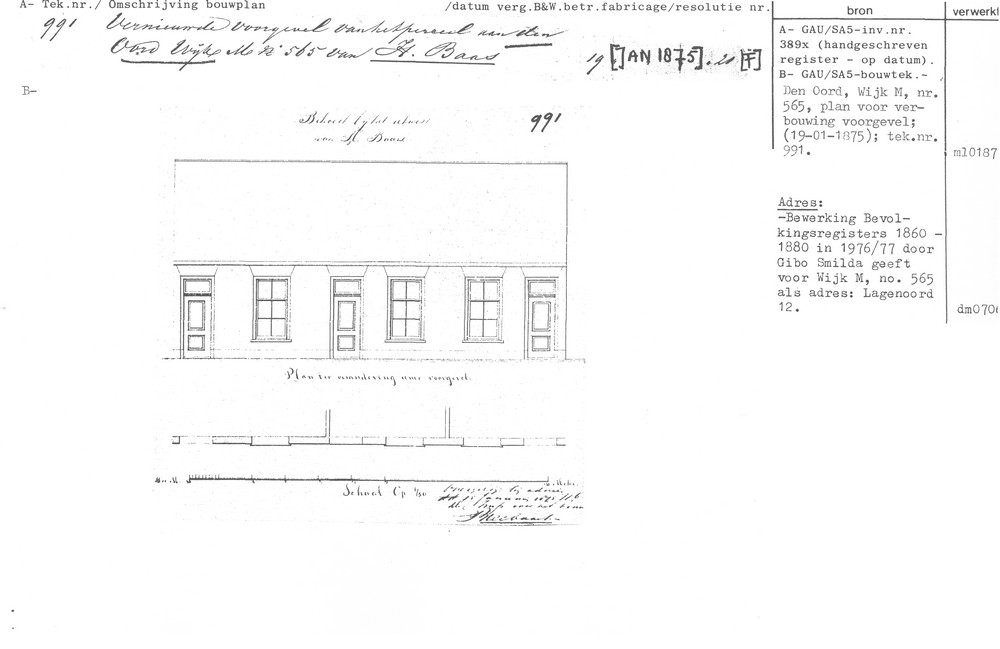 A- Tek.nr./ Omschrijving bouwplan /datum verg.B&W.betr.fabricage/resolutie nr.
991 Vernieuwde voorgevel van het perceel aan den
Oord Wijk M N° 565 van H. Baas
19 [JAN 1875]. 21 [F]
B-
991
van H. Baas
Plan ter verandering eener voorgevel.
Schaal Op
bron
verwerkt
A- GAU/SA5-inv.nr.
389x (handgeschreven
register - op datum).
B- GAU/SA5-bouwtek.-
Den Oord, Wijk M, nr.
565, plan voor ver-
bouwing voorgevel;
(19-01-1875); tek.nr.
991.
ml0187
Adres:
-Bewerking Bevol-
kingsregisters 1860 -
1880 in 1976/77 door
Gibo Smilda geeft
voor Wijk M, no. 565
als adres: Lagenoord
12.
dm070